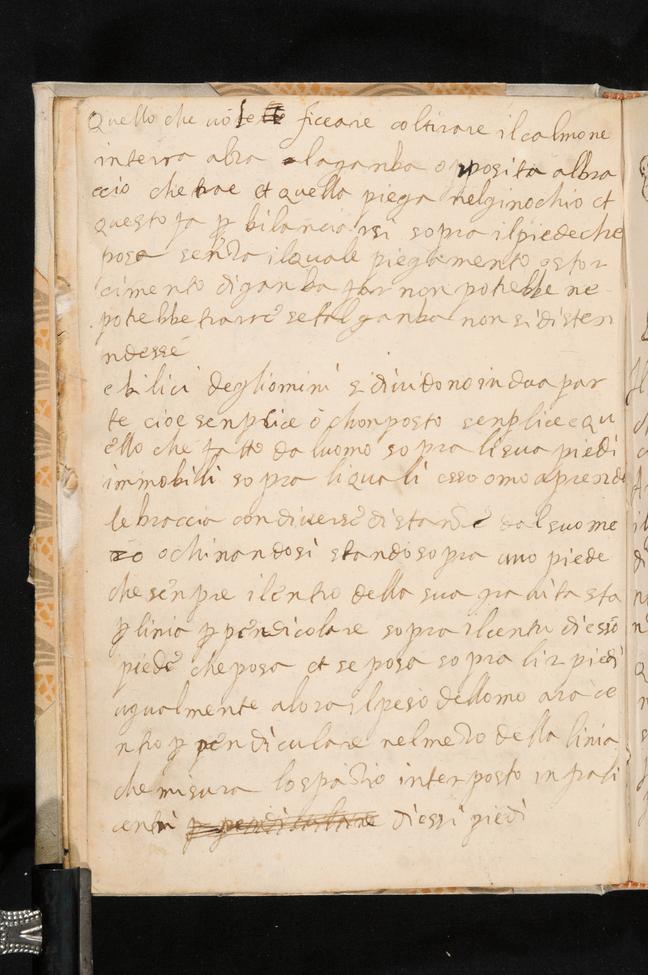 Quello che uole ficcare coltirare ilcalmone
interra alza laganba opposita albra
ccio che trae et quella piega nelginochio et
questo fa p bilanciarsi sopra ilpiedeche
posa senza ilquale piegamento ostor
cimento diganba far non potrebbe ne
potrebbe trarre se tal ganba non sidisten
ndesse
ebilici degliomini sidiuidono in dua par
te cioe senplice o chonposto senplice e qu
ello che fatto da luomo sopra lisua piedi
immobili sopra liquali esso omo aprendo
le braccia con diuerse distanze dal suo me
zo o chinandosi stando sopra uno piede
che senpre ilcentro della sua grauita sta
p linia p pendicolare sopra ilcentro diesso
piede che posa et se posa sopra li 2 piedi
ugualmente alora ilpeso dellomo ara ce
ntro p pendiculare nelmezo della linia
che misura lo spazio interposto infrali
centri p pendiculare diessi piedi